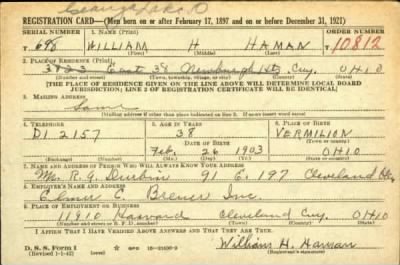 REGISTRATION CARD—(Men born on or after February 17, 1897 and on or before December 31, 1921)
SERIAL NUMBER 1. NAME (Print) ORDER NUMBER
T 698 WILLIAM H HAMAN 10812
(First) (Middle) (Last)
2. PLACE OF RESIDENCE (Print)
3823 East 38 Newburgh Hts. Cuy. OHIO
(Number and street) (Town, township, village, or city) (County) (State)
[THE PLACE OF RESIDENCE GIVEN ON THE LINE ABOVE WILL DETERMINE LOCAL BOARD
JURISDICTION; LINE 2 OF REGISTRATION CERTIFICATE WILL BE IDENTICAL]
3. MAILING ADDRESS
Same
[Mailing address if other than place indicated on line 2. If same insert word same]
4. TELEPHONE 5. AGE IN YEARS 6. PLACE OF BIRTH
DI 2157 38 VERMILION
DATE OF BIRTH (Town or county)
Feb. 26 1903 OHIO
(Exchange) (Number) (Mo.) (Day) (Yr.) (State or country)
7. NAME AND ADDRESS OF PERSON WHO WILL ALWAYS KNOW YOUR ADDRESS
Mrs. R. G. Durbin 91 E. 197 Cleveland
8. EMPLOYER'S NAME AND ADDRESS
Elmer C. Breuer Inc.
9. PLACE OF EMPLOYMENT OR BUSINESS
11910 Harvard Cleveland Cuy. OHIO
(Number and street or R. F. D. number) (Town) (County) (State)
I AFFIRM THAT I HAVE VERIFIED ABOVE ANSWERS AND THAT THEY ARE TRUE.
D. S. S. Form 1
(Revised 1-1-42) (over) William H. Haman
(Registrant's signature)